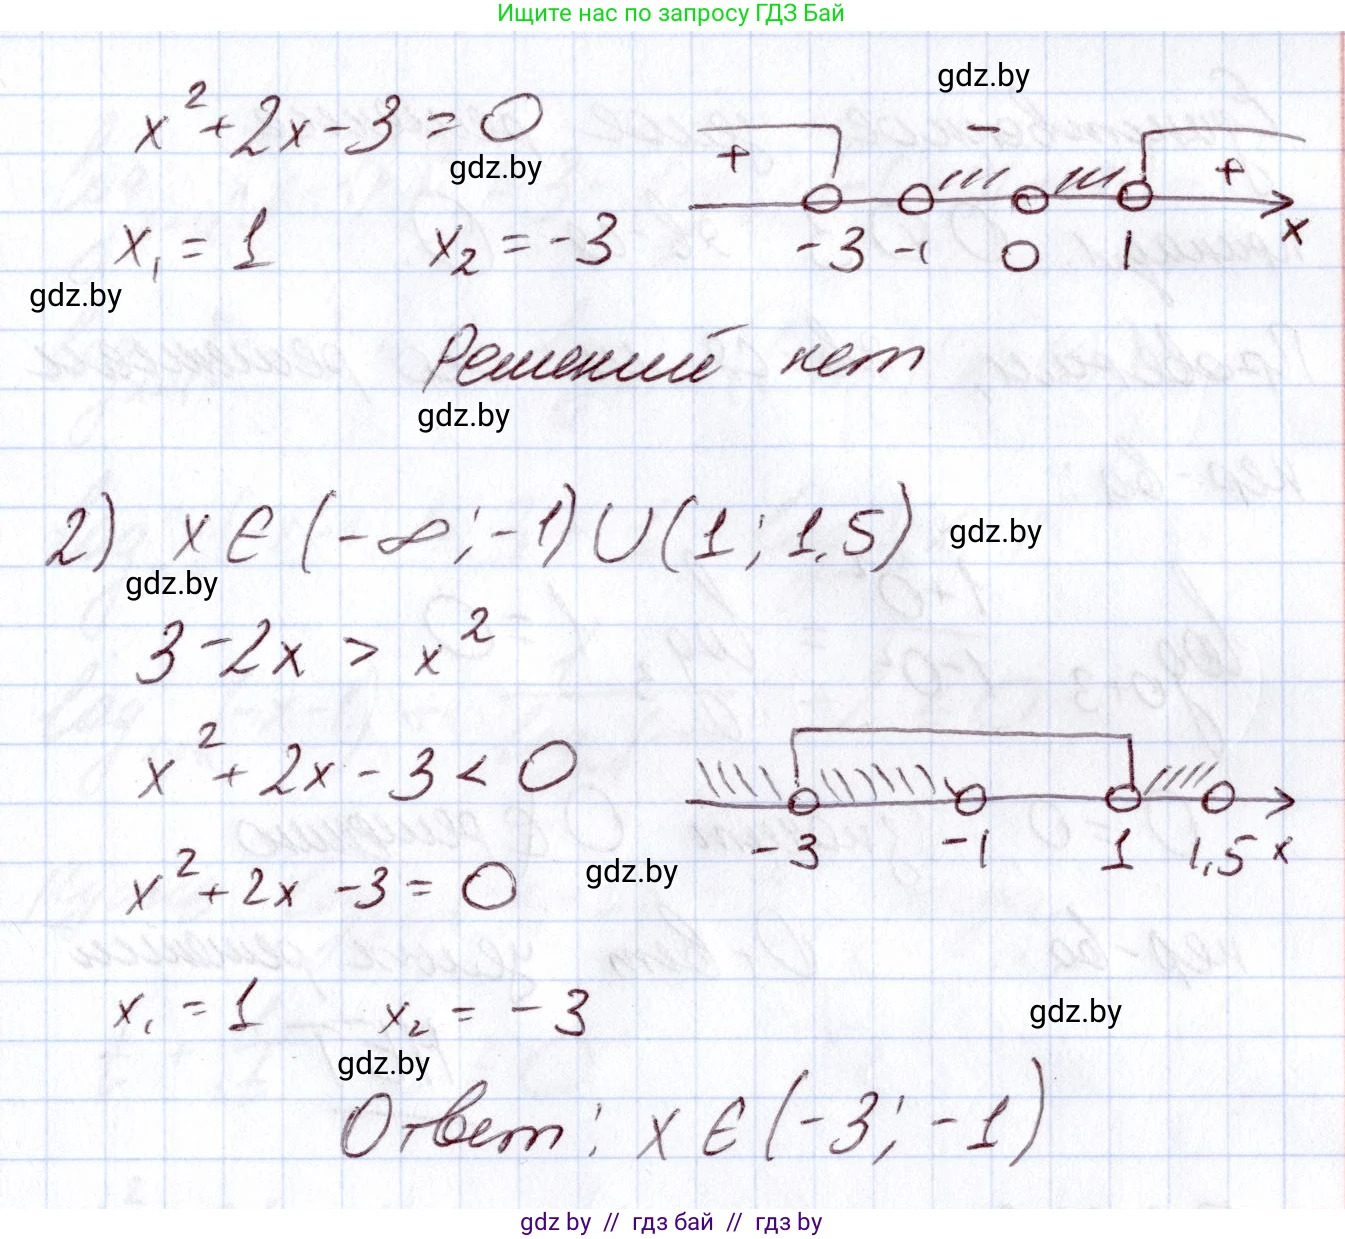 Ищите нас по запросу ГДЗ Бай
gdz.by
x² + 2x - 3 = 0
gdz.by
+ - +
-3 -1 0 1 x
x₁ = 1 x₂ = -3
gdz.by
Решений нет
gdz.by
2) x ∈ (-∞; -1) ∪ (1; 1,5)
gdz.by
gdz.by
3 - 2x > x²
x² + 2x - 3 < 0
-3 -1 1 1,5 x
x² + 2x - 3 = 0
gdz.by
x₁ = 1 x₂ = -3
gdz.by
gdz.by
Ответ: x ∈ (-3; -1)
gdz.by // гдз бай // гдз by